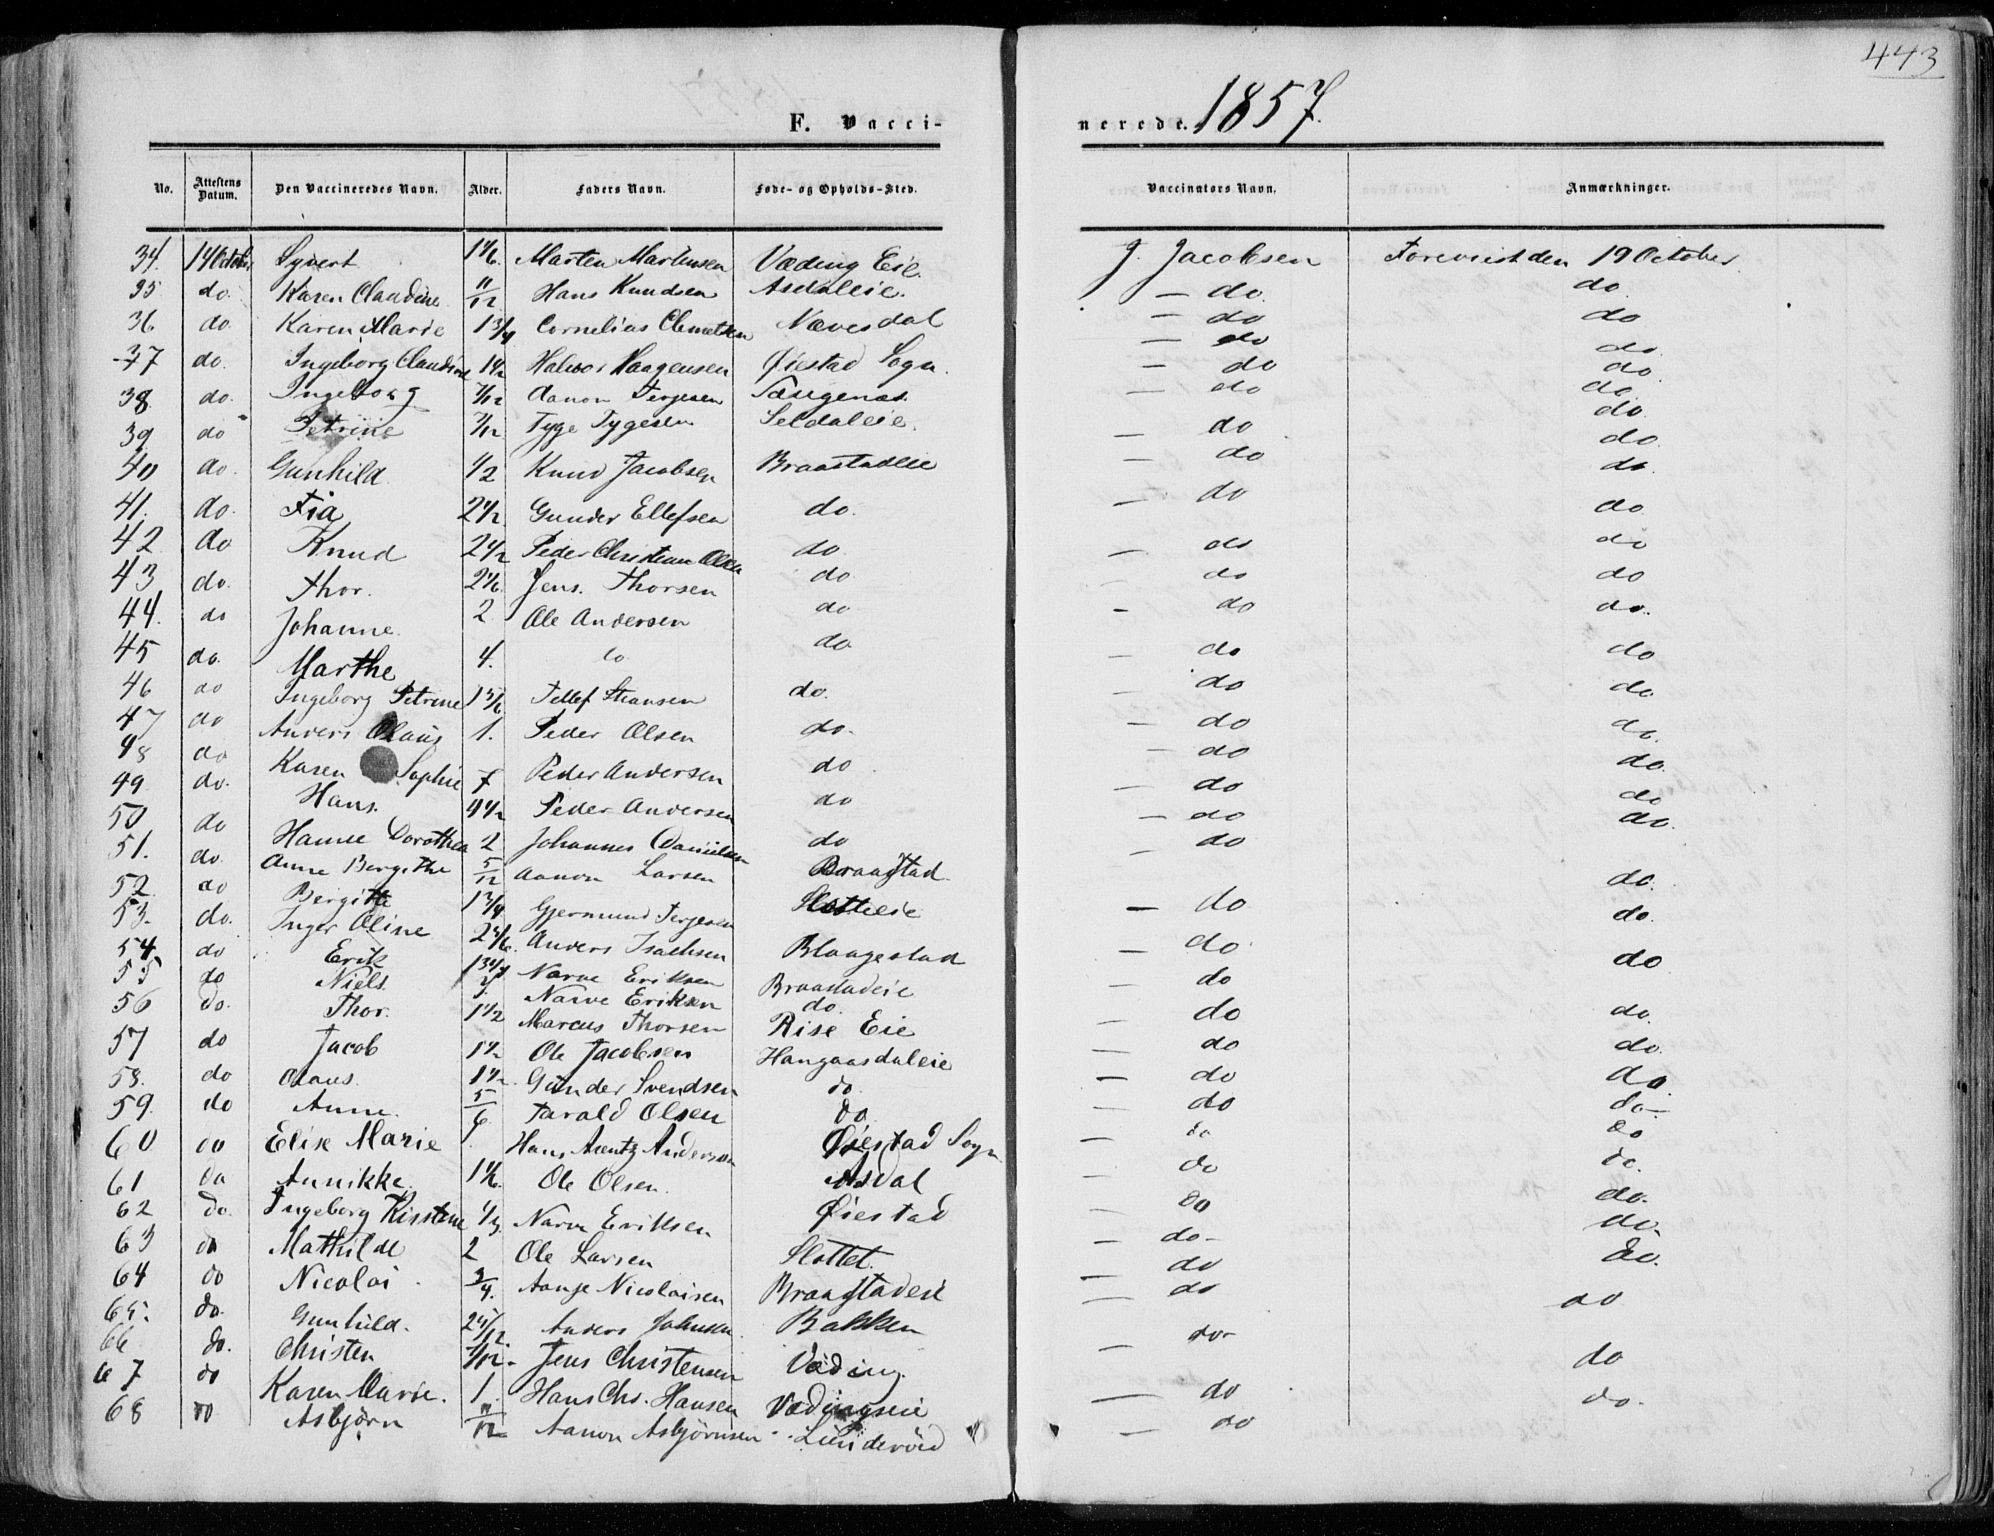 443
F. Vacci-
nerede. 1857.
No. Attestens Datum. Den Vaccineredes Navn. Alder. Faders Navn. Føde- og Opholds-Sted. Vaccinators Navn. Anmærkninger.
34. 14 October Syvert 1 1/6. Marten Martensen Væding Eie. J. Jacobsen Foreviist den 19 October.
35 do. Karen Claudine 11/12 Hans Knudsen Asdaleie. — do. do.
36 do Karen Marie 1 3/4 Cornelius Nævesdal — do do
37 do. Ingeborg Claudine 1 1/2 Halvor Haagensen Øiestad Sogn. — do do.
38. do. Ingeborg 7/12 Aanon Terjesen — do do.
39 do Petrine 7/12 Tyge Tygesen Seldaleie. — do do
40 do. Gunhild 1/2 Knud Jacobsen Braastadeie — do do.
41. do. Fia 2 1/2 Gunder Ellefsen do. — do do.
42 do Knud 2 1/2 Peder Christian Olsen do — do do
43 do. Thor. 2 1/6. Jens. Thorsen do — do do
44. do Johanne. 2 Ole Andersen do — do do.
45 do. Marthe 4. do do — do do
46 do Ingeborg Petrine 1 5/6 Tellef do. — do do
47 do Anders Olaus 1. Peder Olsen do. — do do.
48 do Karen Sophie 7 Peder Andersen do — do do.
49 do. Hans. 4 1/2 Peder Andersen do — do do
50 do Hanne Dorothea 2 Johannes Danielsen do — do do.
51. do. Anne Bergithe 5/12 Aanon Larsen Braastad — do do.
52. do Bergitte 1 3/4 Gjermund Terjesen Sletteeie — do do.
53. do. Inger Oline 2 1/6. Anders Isachsen Blaagestad — do do
54 do Erik Narve Eriksen Braastadeie — do
55 do Niels Narve Eriksen do. — do do.
56 do. Thor. 1 1/2 Marcus Thorsen Rise Eie — do do.
57 do Jacob 1 1/2 Ole Jacobsen Haugaasdaleie — do do
58. do Olaus. 1 1/2. Gunder Svendsen do. — do do—
59. do Anne. 5/6 Tarald Olsen do. — do do
60 do Elise Marie 1 Hans Arentz Andersen Øiestad Sogn — do do.
61 do Annikke. 1 1/6. Ole Olsen. Asdal — do do.
62 do. Ingeborg Kirstine 1/3 Narve Eriksen Øiestad — do- do.
63 do Mathilde 2 Ole Larsen Slottet. — do do.
64 do Nicolai 3/4. Aanje Nicolaisen Braastadeie — do do
65. do. Gunhild. 2 5/12 Anders Johnsen Bakken — do-
66 do. Christen 7/12. Jens Christensen Væding. do
67 do Karen Marie. 1. Hans Chs. Hansen Vædingseie — do do.
68 do Asbjørn 11/12 Aanon Asbjørnsen Lunderöed — do